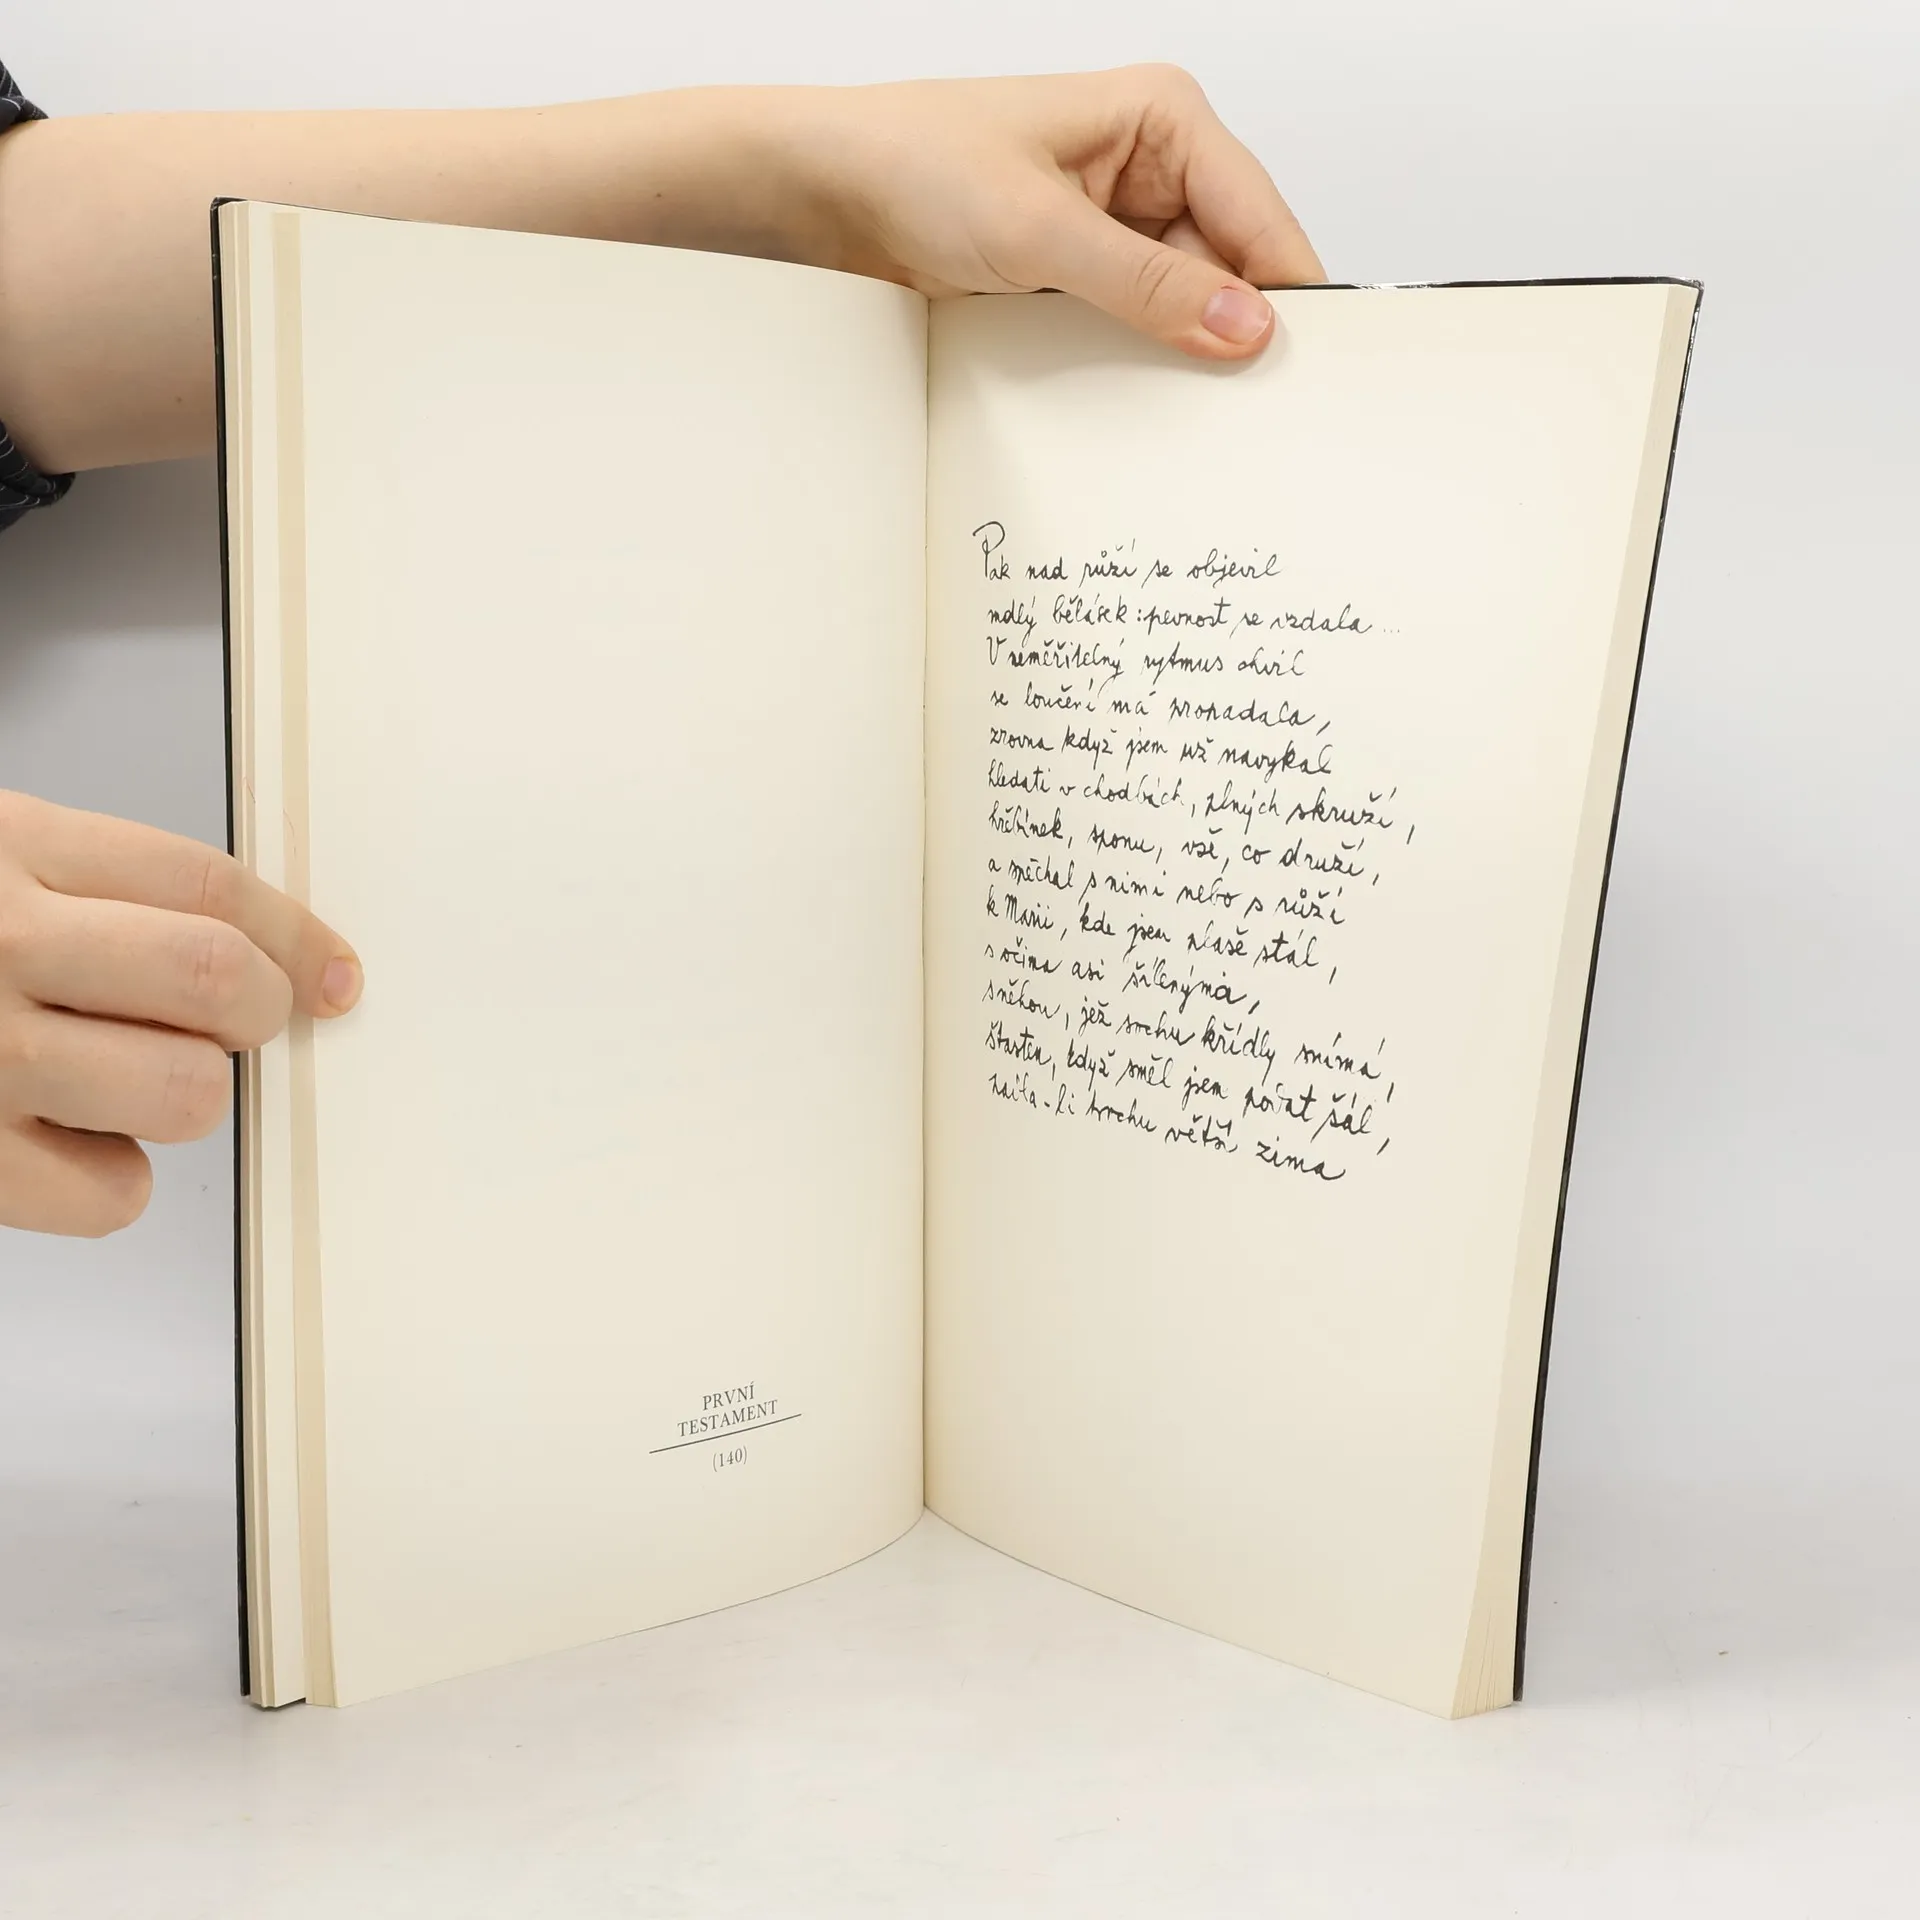 PRVNÍ
TESTAMENT
(140)
Pak nad růží se objevil
mdlý bělásek: pevnost se vzdala...
V neměřitelný rytmus chvil
se loučení má propadala,
zrovna když jsem už navykal
hledati v chodbách, plných skruží,
hřebínek, sponu, vše, co druží,
a spěchal s nimi nebo s růží
k Marii, kde jsem plaše stál,
s očima asi šílenýma,
sněhou, jež svrchu křídly snímá,
šťasten, když směl jsem podat šál,
- li svrchu větší zima